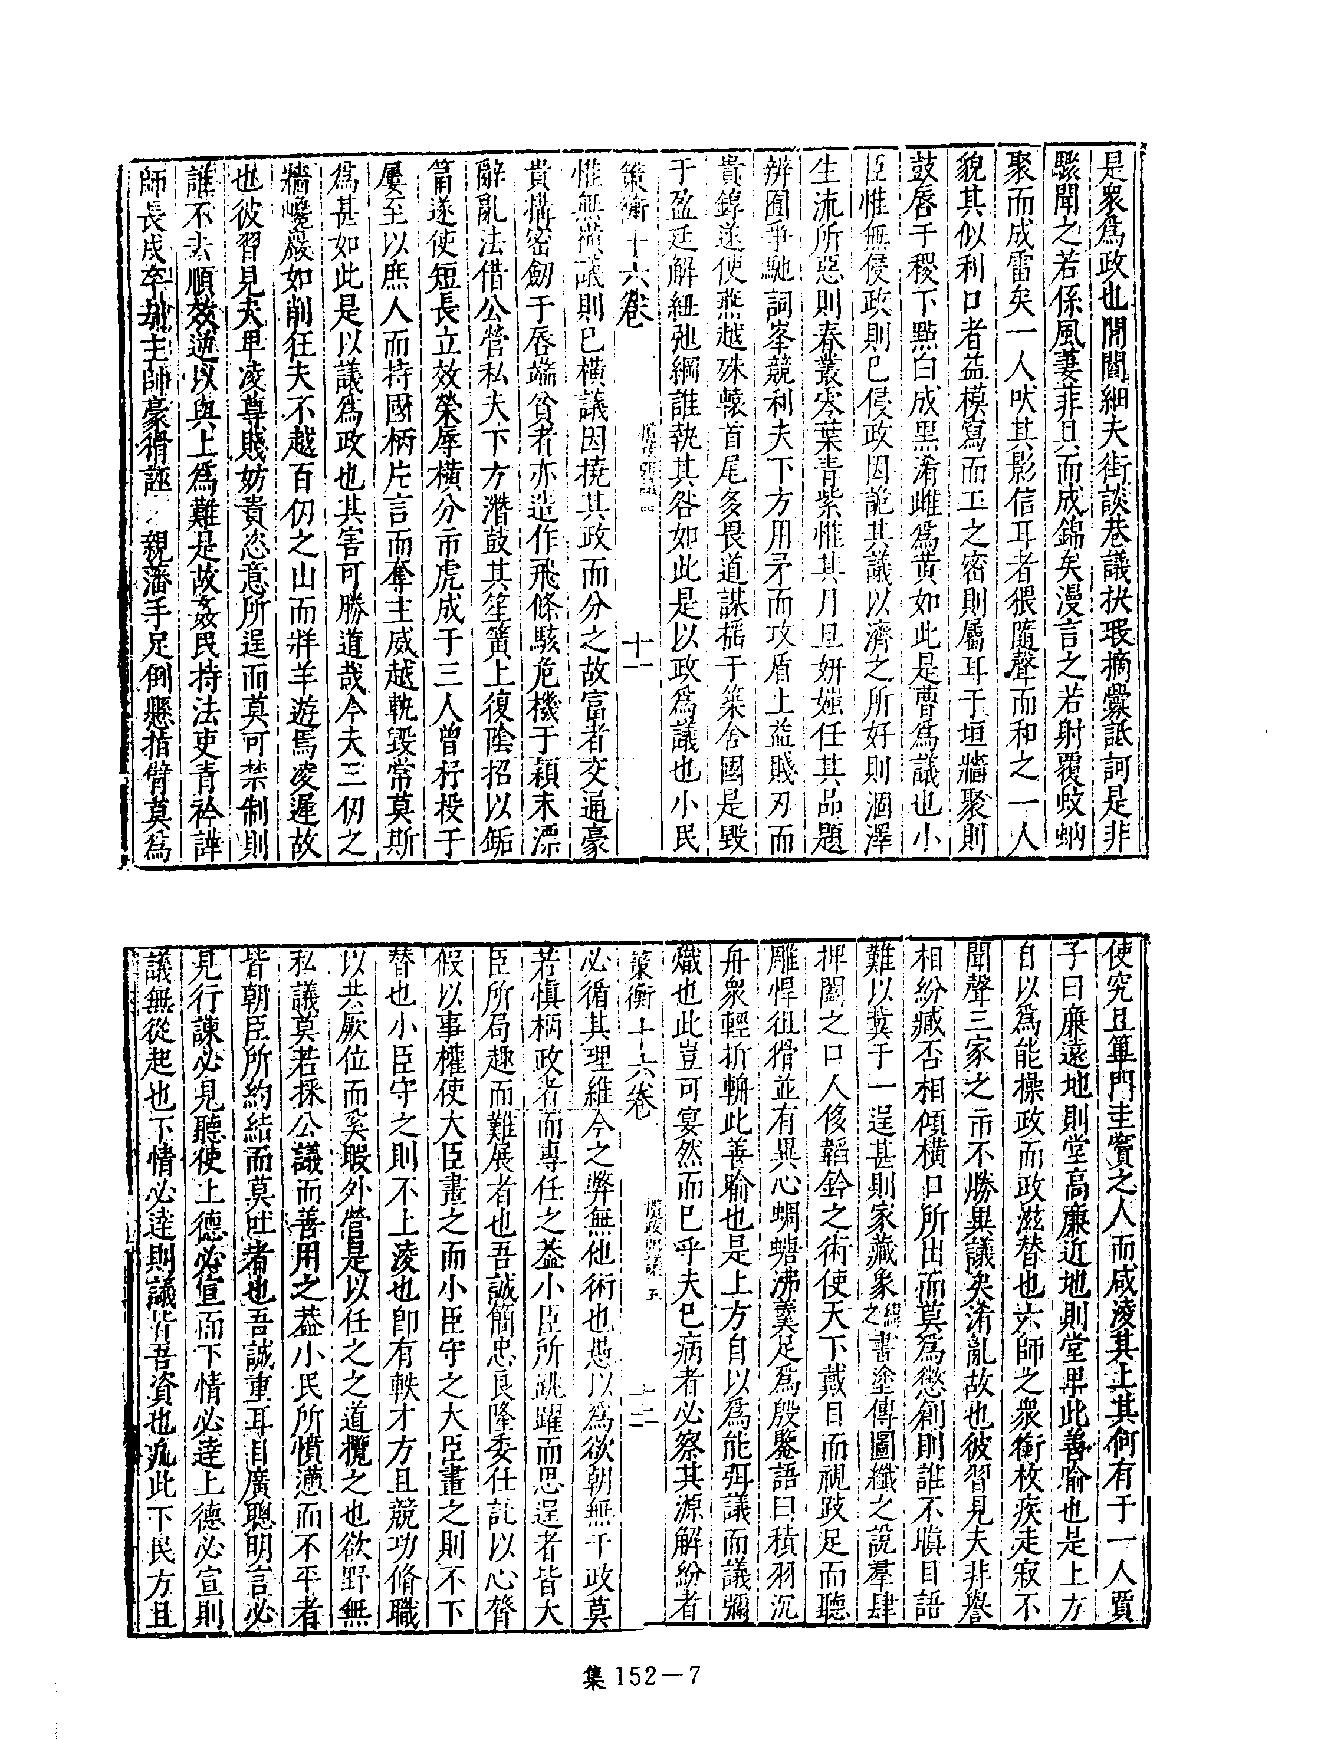 是衆爲政也閭閻細夫街談巷議抉瑕摘釁詆訶是非
驟聞之若係風萋菲具而成錦矣漫言之若射覆蚊蚋
聚而成雷矣一人吠其影信耳者猥隨聲而和之一人
貌其似利口者益模寫而工之密則屬耳于垣牆聚則
鼓唇于稷下點白成黑淆雌爲黄如此是曹爲議也小
臣惟無侵政則已侵政因詭其議以濟之所好則涸澤
生流所惡則春叢零葉青紫惟其月旦妍媸任其品題
辨囿爭馳詞峯競利夫下方用矛而攻盾上益賤刃而
貴錞遂使燕越殊轅首尾多畏道謀梧于築舍國是毀
于盈廷解紐弛綱誰執其咎如此是以政爲議也小民
策衡十六卷 十一
惟無横議則已横議因撓其政而分之故富者交通豪
貴搆密劒于唇端貧者亦造作飛條駭危機于穎末漂
辭亂法借公營私夫下方潛鼓其笙簧上復陰招以缿
筩遂使短長立效榮辱横分市虎成于三人曾杼投于
屢至以庶人而持國柄片言而奪主威越軌毀常莫斯
爲甚如此是以議爲政也其害可勝道哉今夫三仞之
牆巉巖如削任夫不越百仞之山而牂羊遊焉凌遲故
也彼習見夫卑凌尊賤妨貴恣意所逞而莫可禁制則
誰不去順效逆以與上爲難是故姦民持法吏青衿譁
師長戍卒刦主帥豪猾誣 親潘手足倒懸指臂莫爲
使究且蓽門圭竇之人而咸淩其上其何有于一人賈
子曰廉遠地則堂高廉近地則堂卑此善喻也是上方
自以爲能操政而政滋替也六師之衆銜枚疾走寂不
聞聲三家之市不勝異議矣淆亂故也彼習見夫非譽
相紛臧否相傾横口所出而莫爲懲創則誰不瞋目語
難以冀于一逞甚則家藏象緯之書塗傳圖纖之說羣肆
捭闔之口人侈韜鈐之術使天下戴目而視跂足而聽
雕悍狙猾並有異心蜩螗沸羹足爲殷鑒語曰積羽沉
舟衆輕折軸此善喻也是上方自以爲能弭議而議彌
熾也此豈可宴然而已乎夫已病者必察其源解紛者
策衡十六卷 十二
必循其理維今之弊無他術也愚以爲欲朝無干政莫
若慎柄政者而專任之葢小臣所跳躍而思逞者皆大
臣所局趣而難展者也吾誠簡忠良隆委任託以心膂
假以事權使大臣畫之而小臣守之大臣畫之則不下
替也小臣守之則不上淩也卽有軼才方且競功脩職
以共厥位而奚暇外營是以任之之道攬之也欲野無
私議莫若採公議而善用之葢小民所憤懣而不平者
皆朝臣所約結而莫吐者也吾誠重耳目廣聰明言必
見行諫必見聽使上德必宣而下情必達上德必宣則
議無從起也下情必達則議皆吾資也疏此下民方且
集 152－7